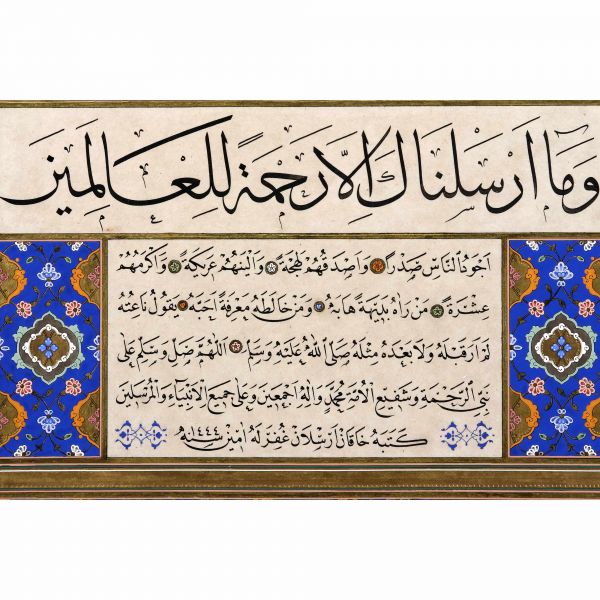 وَمَا اَرْسَلْنَاكَ اِلَّا رَحْمَةً لِلْعَالَمِينَ
اَجْوَدُ النَّاسِ صَدْرًا وَاَصْدَقُهُمْ لَهْجَةً وَاَلْيَنُهُمْ عَرِيكَةً وَاَكْرَمُهُمْ
عِشْرَةً مَنْ رَاٰهُ بَدِيهَةً هَابَهُ وَمَنْ خَالَطَهُ مَعْرِفَةً اَحَبَّهُ يَقُولُ نَاعِتُهُ
لَمْ اَرَ قَبْلَهُ وَلَا بَعْدَهُ مِثْلَهُ صَلَّى اللّٰهُ عَلَيْهِ وَسَلَّمَ اَللّٰهُمَّ صَلِّ وَسَلِّمْ عَلٰى
نَبِيِّ الرَّحْمَةِ وَشَفِيعِ الْاُمَّةِ مُحَمَّدٍ وَاٰلِهِ اَجْمَعِينَ وَعَلٰى جَمِيعِ الْاَنْبِيَاءِ وَالْمُرْسَلِينَ
كَتَبَهُ خَاقَان اَرْسَلَان غُفِرَ لَهُ اٰمِين سَنَة ١٤٤٤